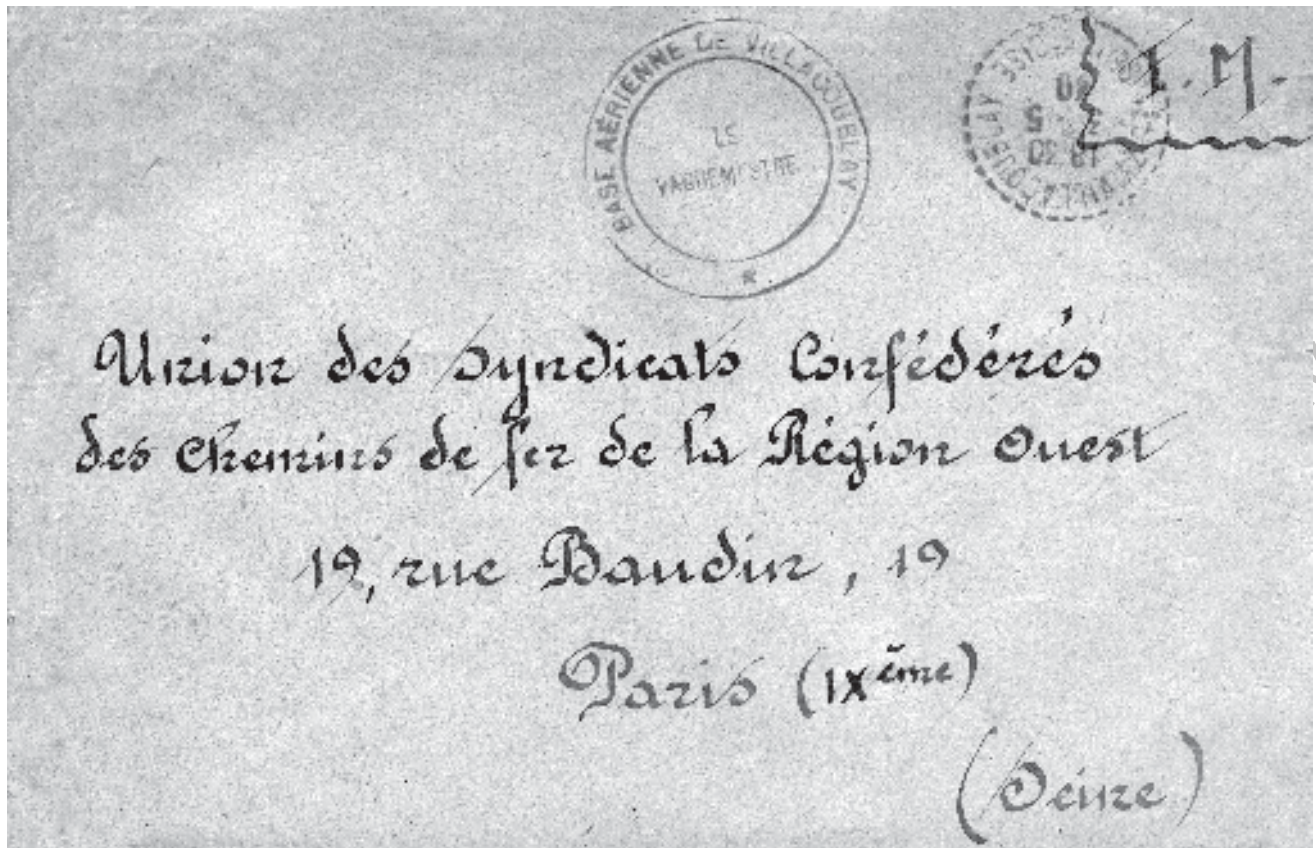 BASE AÉRIENNE DE VILLACOUBLAY
LE
VAGUEMESTRE
F.M.
18 30
Union des Syndicats Confédérés
des Chemins de fer de la Région Ouest
19, rue Baudin, 19
Paris (IXème)
(Seine)